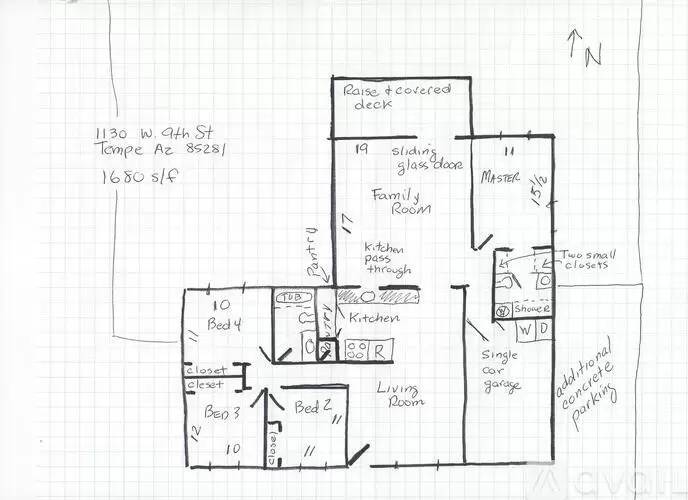 N
Raise + covered
deck
1130 W. 9th St
Tempe Az 85281
1680 s/f
19
sliding
glass door
11
MASTER
15 1/2
Family
Room
17
Kitchen
pass
through
Pantry
Two small
closets
TUB
Pantry
Kitchen
R
Shower
W D
10
Bed 4
11
closet
closet
Bed 3
12
10
Bed 2
11
11
closet
Living
Room
Single
car
garage
additional
concrete
parking
avail